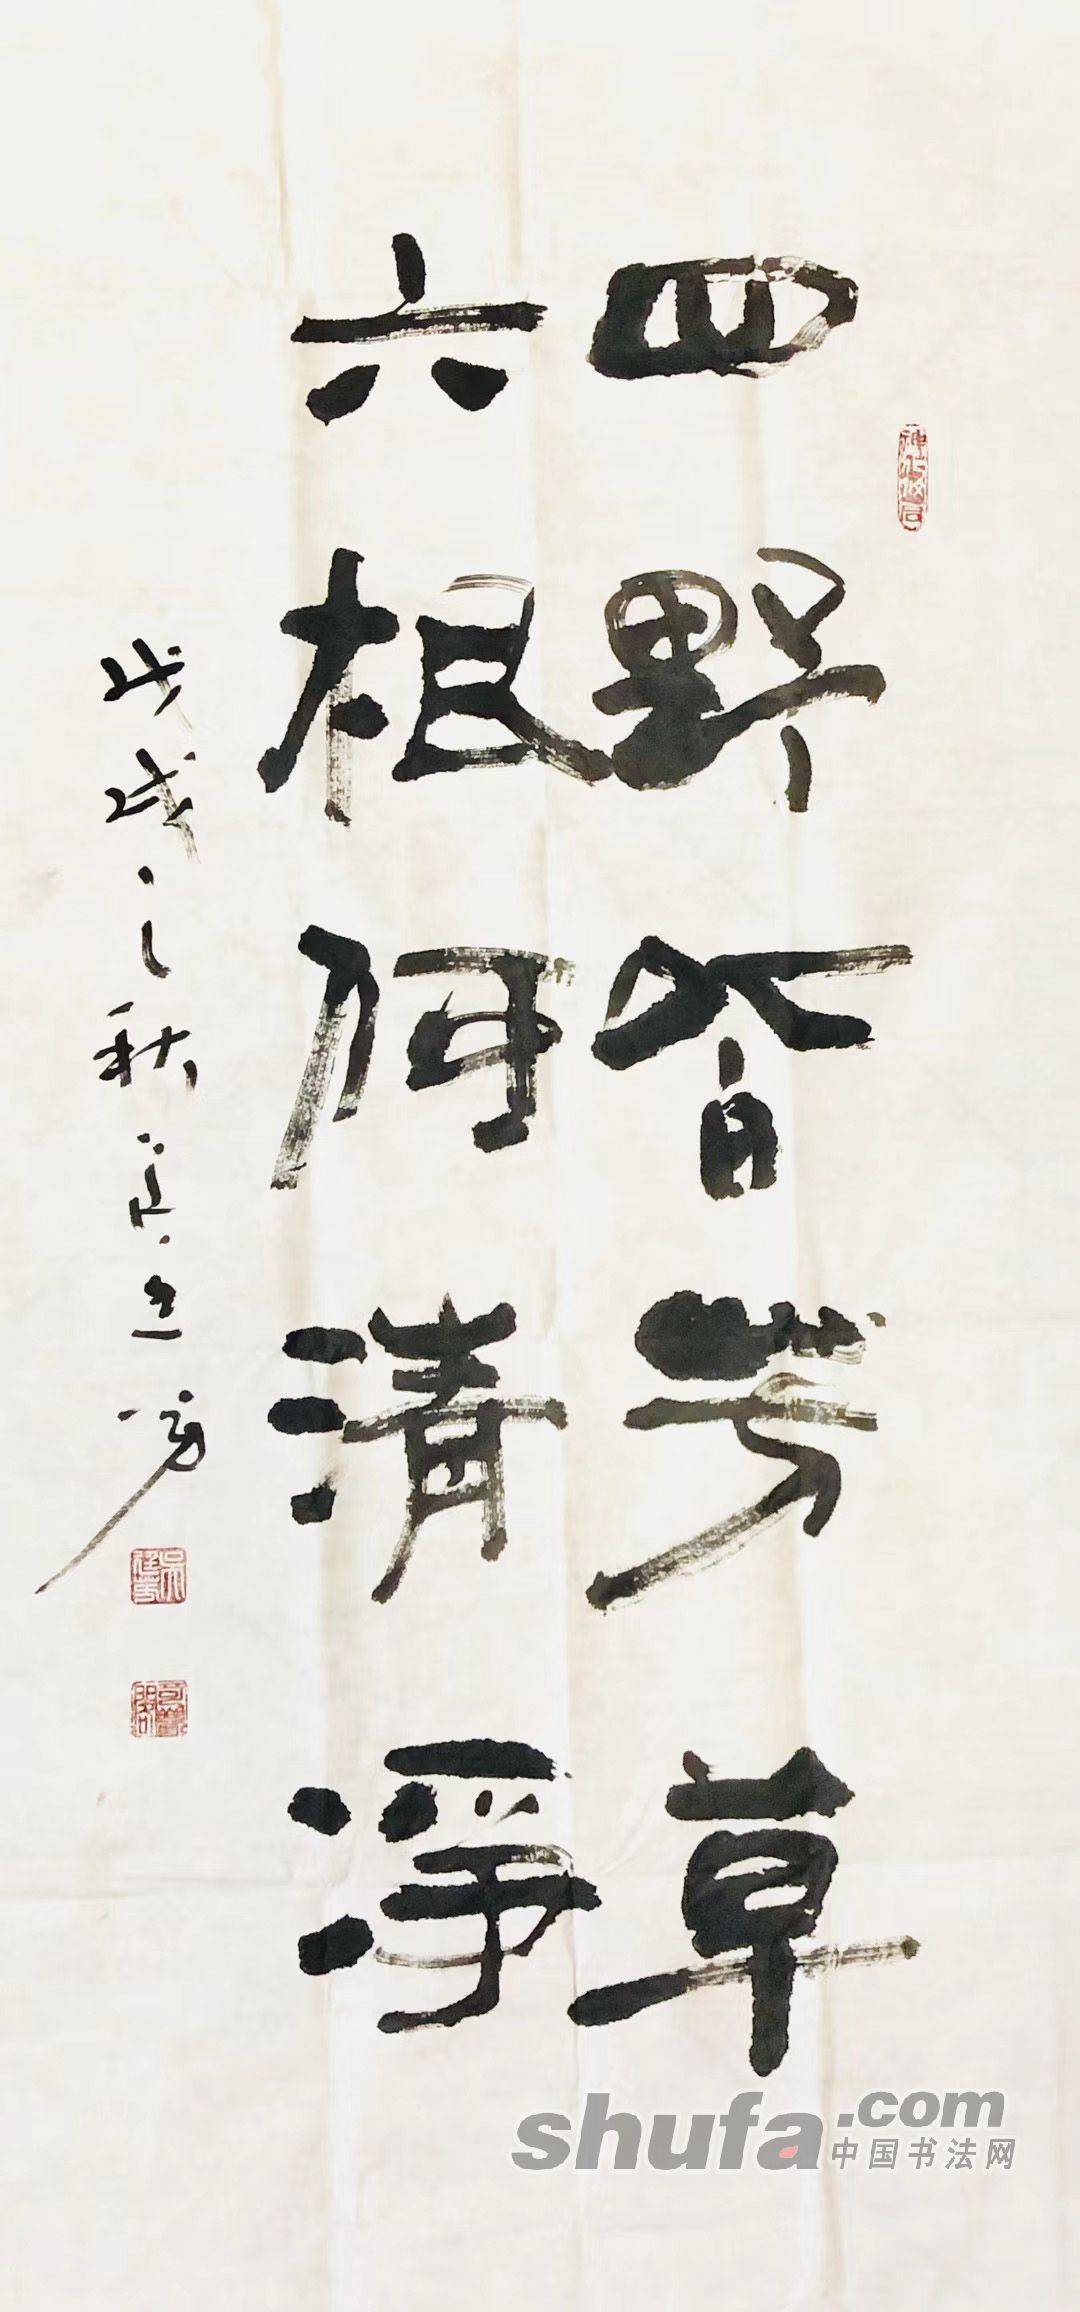 四野皆芳草
六根何清淨
戊戌之秋
shufa.com
中国书法网